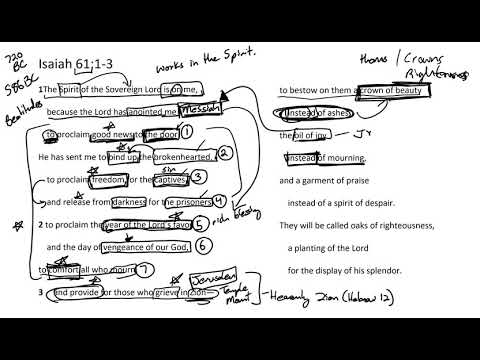 720
BC
586 BC
Isaiah 61:1-3
works in the Spirit.
thorns / Crowns
Righteousness
Beatitudes
1The Spirit of the Sovereign Lord is on me,
because the Lord has anointed me Messiah
to proclaim good news to the poor. 1
He has sent me to bind up the brokenhearted, 2
sin
to proclaim freedom for the captives 3
and release from darkness for the prisoners, 4
2 to proclaim the year of the Lord's favor 5
and the day of vengeance of our God, 6
to comfort all who mourn, 7
Jerusalem
3 and provide for those who grieve in Zion—
Temple
Mount
Heavenly Zion (Hebrew 12)
to bestow on them a crown of beauty
instead of ashes,
the oil of joy
instead of mourning,
and a garment of praise
instead of a spirit of despair.
They will be called oaks of righteousness,
a planting of the Lord
for the display of his splendor.